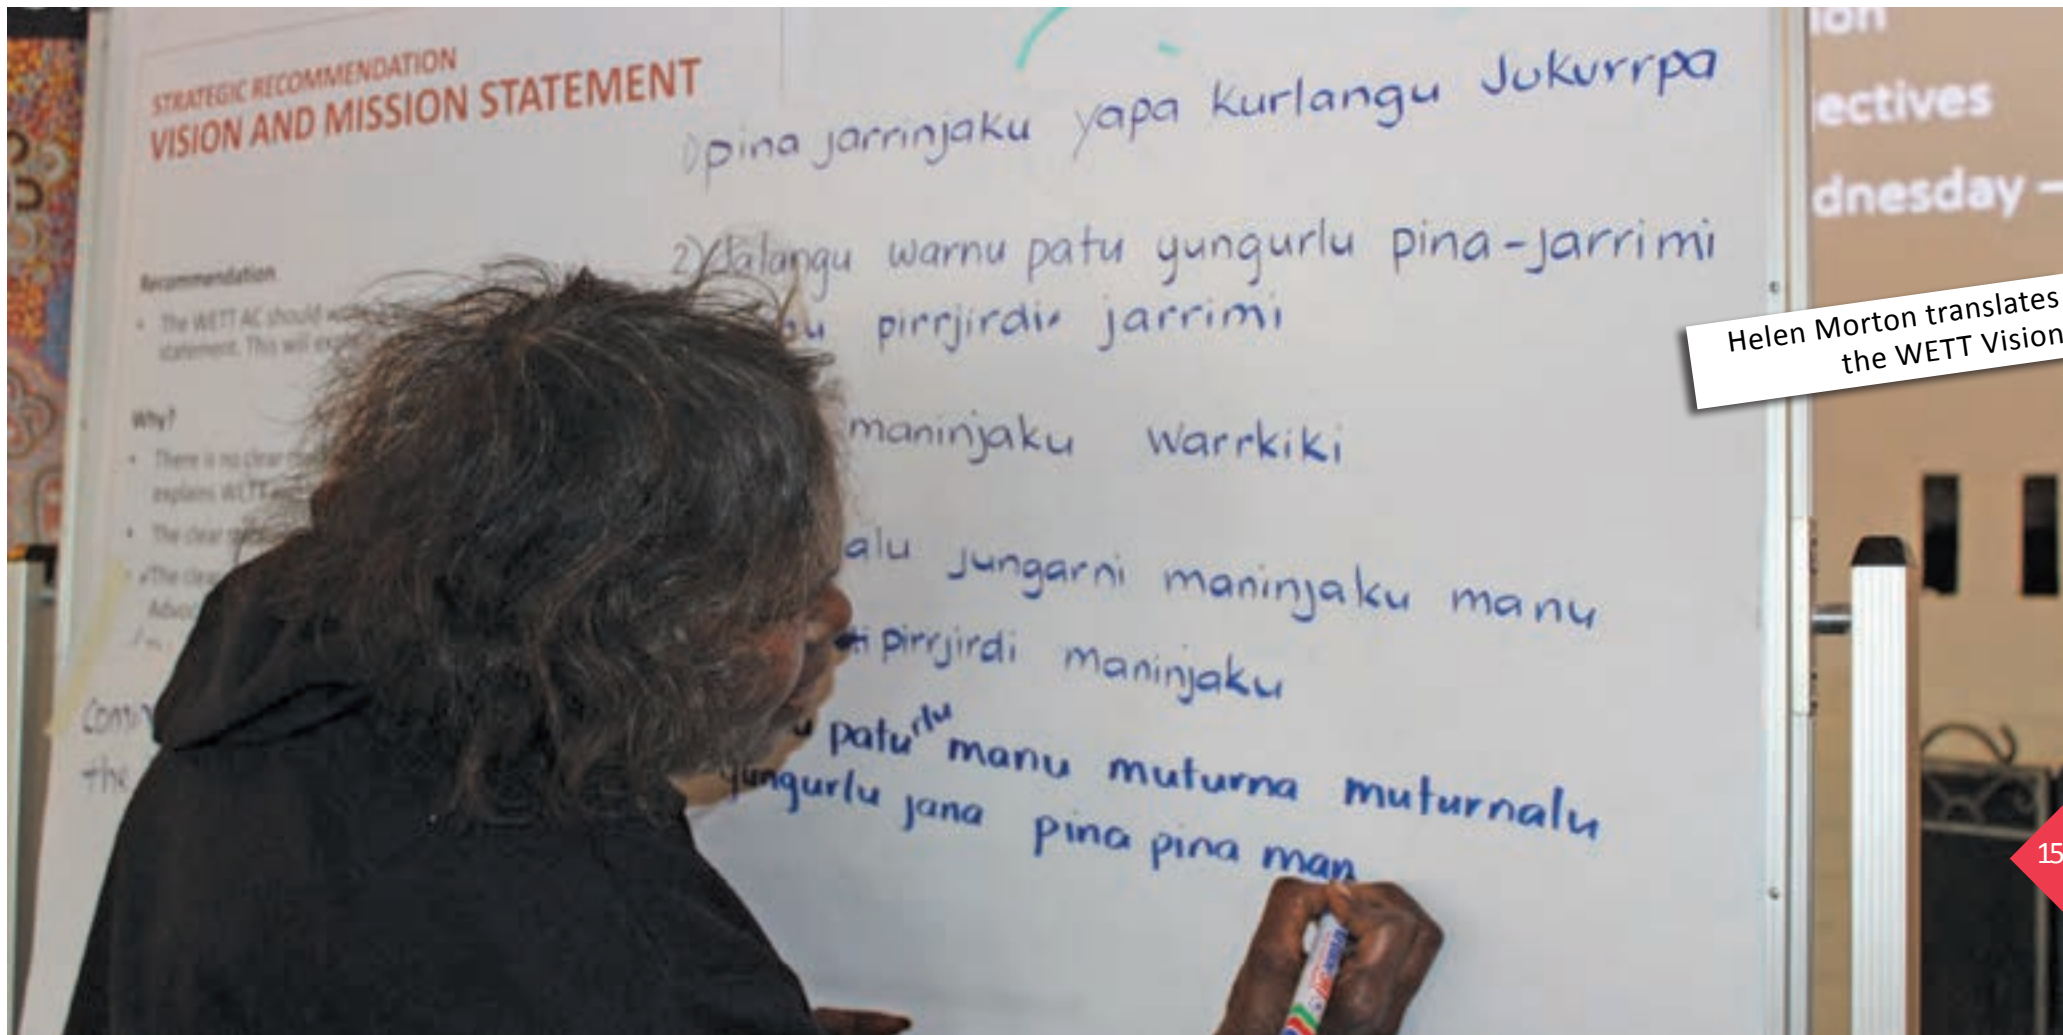 STRATEGIC RECOMMENDATION
VISION AND MISSION STATEMENT
Recommendation
• The WETT AC should
statement. This will
Why?
• There is no clear
explains WETT
• The clear
• The clear
the
1) pina jarrinjaku yapa kurlangu Jukurrpa
2) Jalangu warnu patu yungurlu pina-jarrimi
pirrjirdi jarrimi
maninjaku warrkiki
alu jungarni maninjaku manu
pirrjirdi maninjaku
patu rlu manu muturna muturnalu
yungurlu jana pina pina man
ion
ectives
dnesday –
Helen Morton translates
the WETT Vision
15